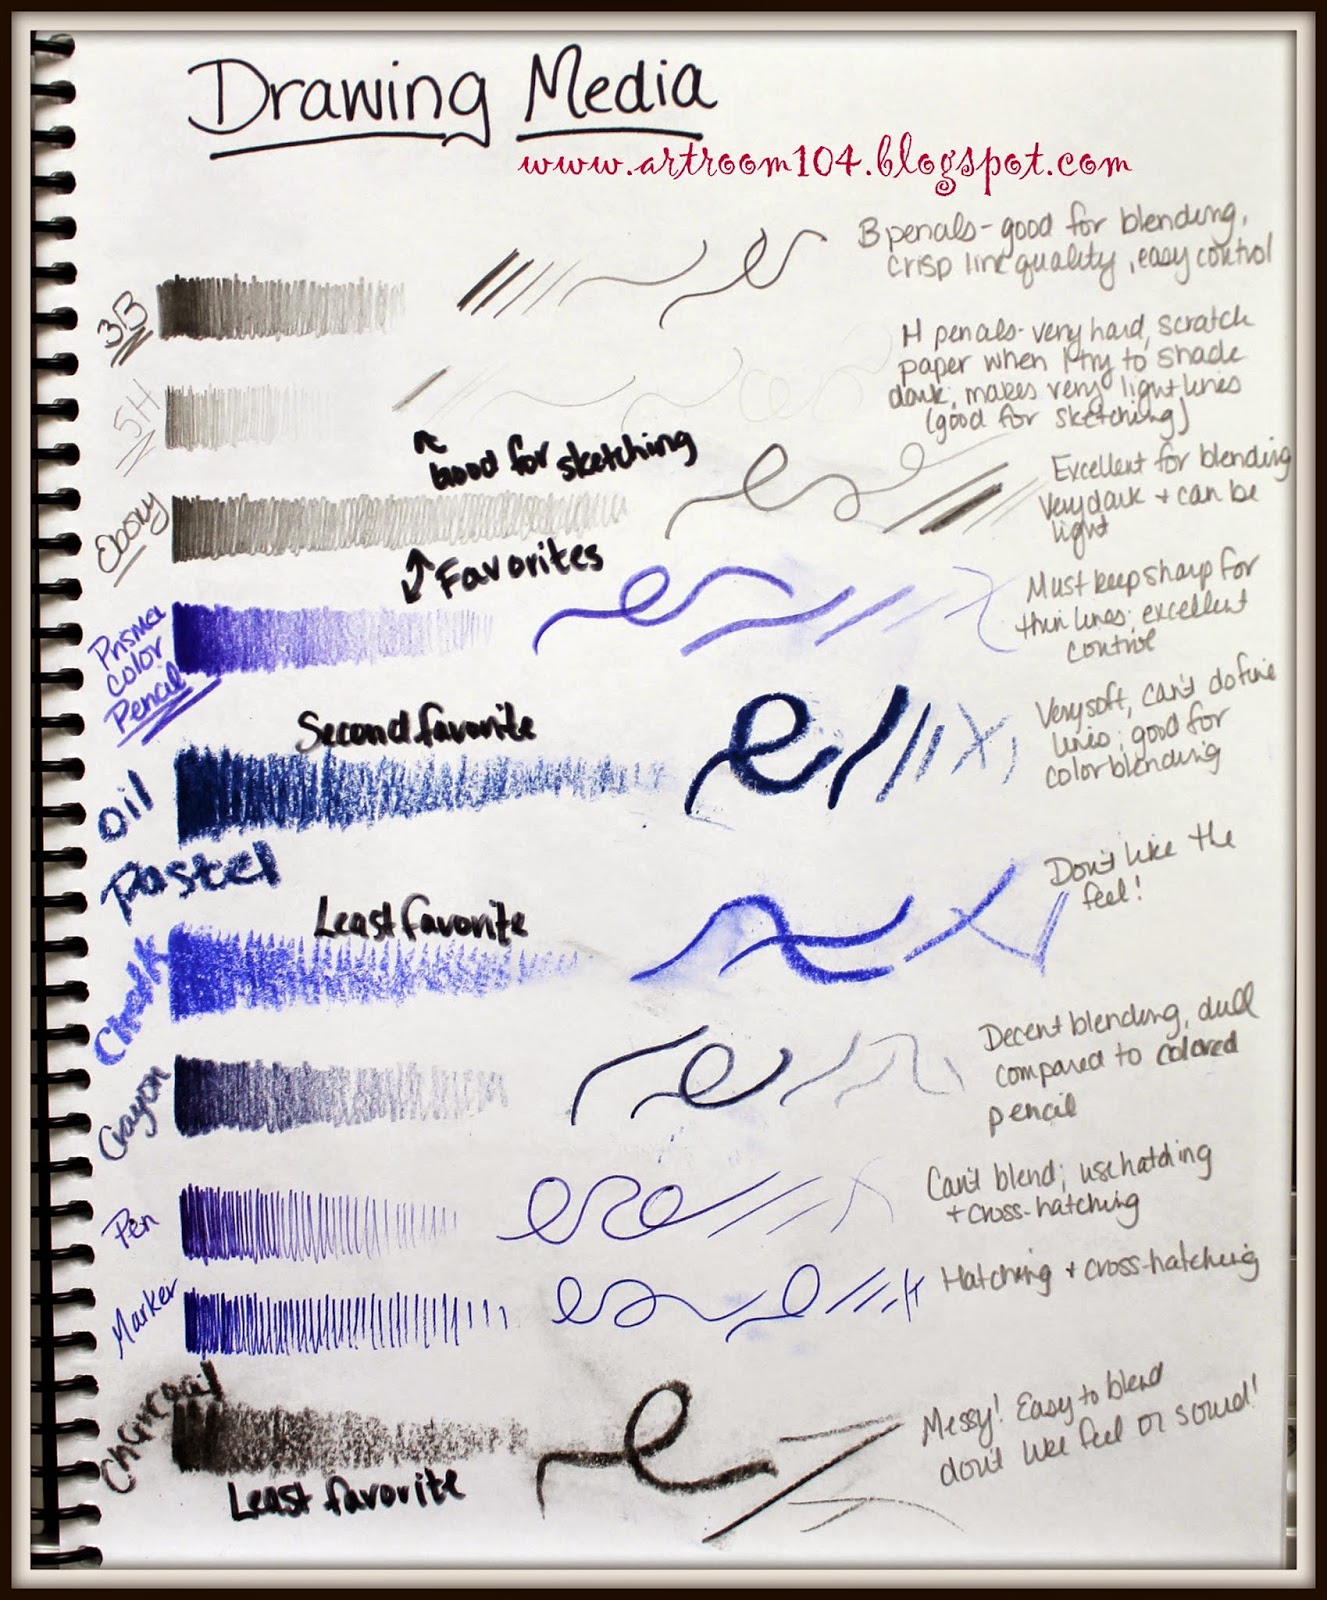 Drawing Media
www.artroom104.blogspot.com
3B
B pencils - good for blending,
crisp line quality, easy control
5H
H pencils - very hard, scratch
paper when I try to shade
dark; makes very light lines
(good for sketching)
Good for sketching
Ebony
Excellent for blending
Very dark + can be
light
Favorites
Prisma
Color
Pencil
Must keep sharp for
thin lines; excellent
control
Second favorite
Oil
Pastel
Very soft, can't do fine
lines; good for
color blending
Least favorite
Chalk
Don't like the
feel!
Crayon
Decent blending, dull
compared to colored
pencil
Pen
Can't blend; use hatching
+ cross-hatching
Marker
Hatching + cross-hatching
Charcoal
Least favorite
Messy! Easy to blend
don't like feel or sound!